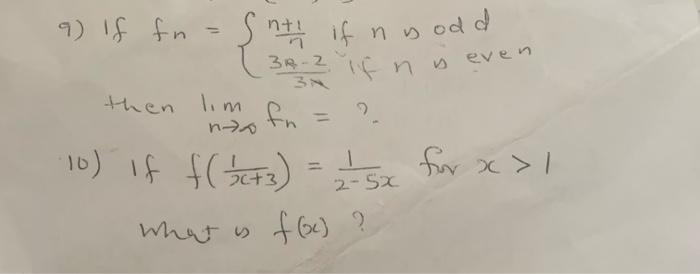 9) If fn = { n+1/n if n is odd
3n-2/3n if n is even
then lim n→∞ fn = ?
10) If f(1/x+3) = 1/2-5x for x > 1
What is f(x) ?